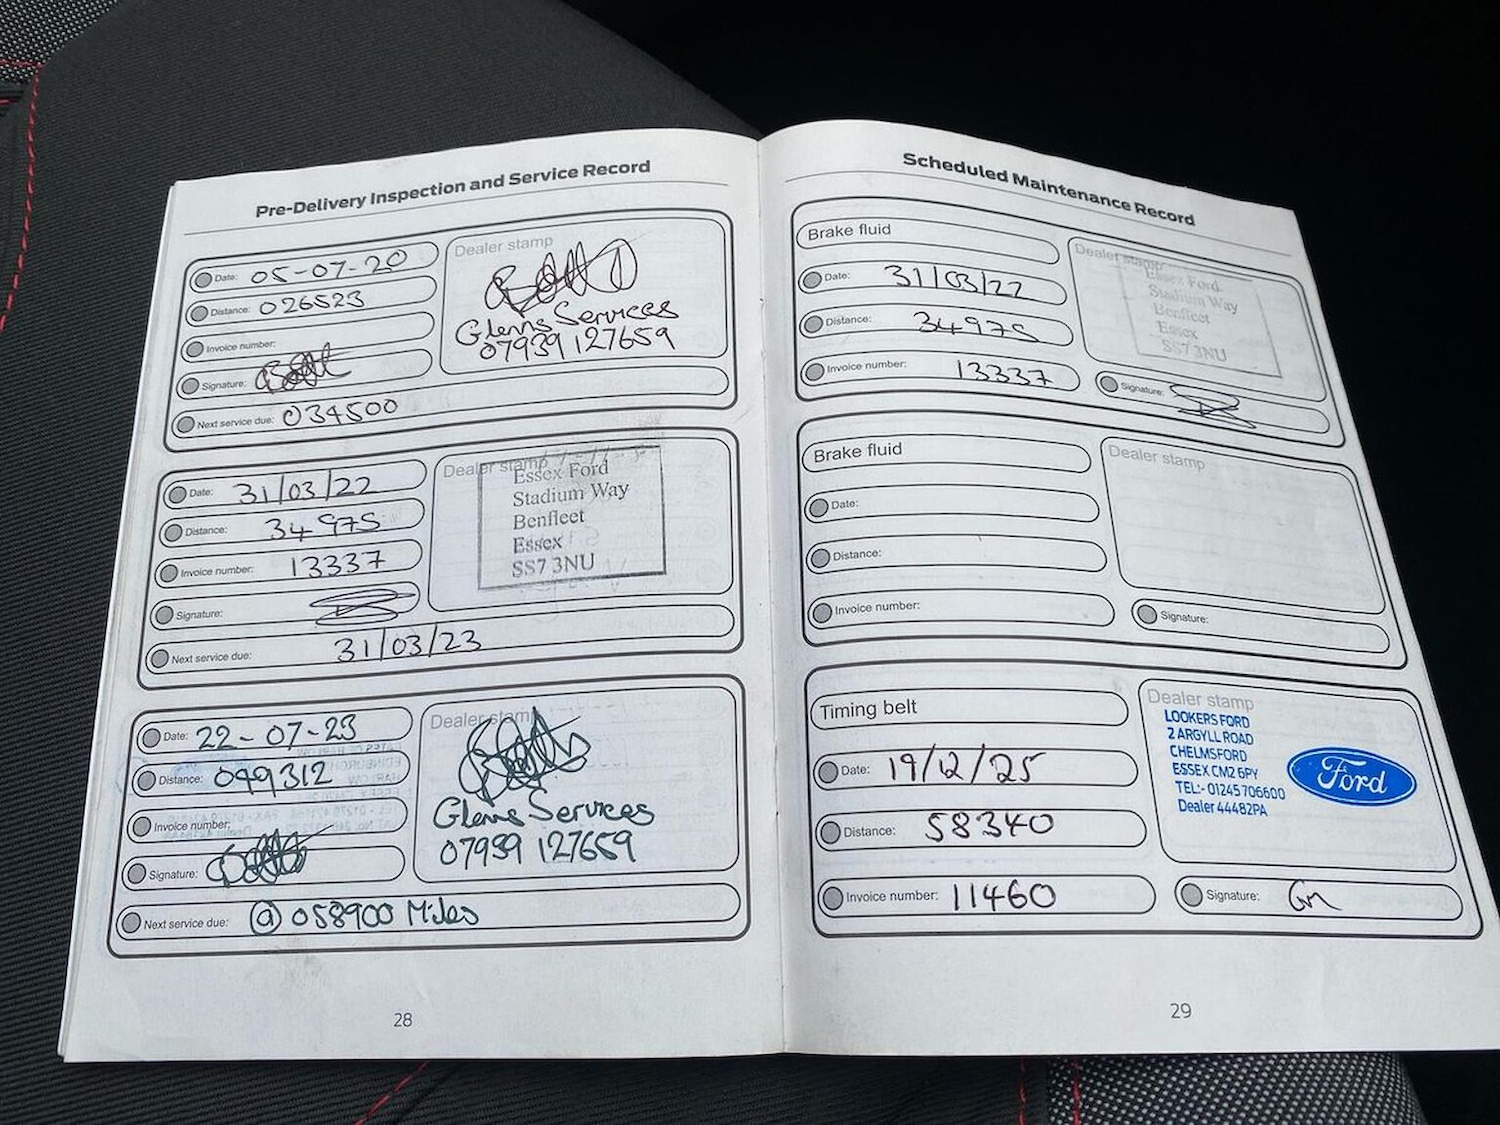 Pre-Delivery Inspection and Service Record
Date: 05-07-20
Distance: 026523
Invoice number:
Signature:
Next service due: 034500
Dealer stamp
Glenns Services
07939 127659
Date: 31/03/22
Distance: 34975
Invoice number: 13337
Signature:
Next service due: 31/03/23
Dealer stamp
Essex Ford
Stadium Way
Benfleet
Essex
SS7 3NU
Date: 22-07-23
Distance: 049312
Invoice number:
Signature:
Next service due: @ 058900 Miles
Dealer stamp
Glenns Services
07939 127659
28
Scheduled Maintenance Record
Brake fluid
Date: 31/03/22
Distance: 34975
Invoice number: 13337
Dealer stamp
Essex Ford
Stadium Way
Benfleet
Essex
SS7 3NU
Signature:
Brake fluid
Date:
Distance:
Invoice number:
Dealer stamp
Signature:
Timing belt
Date: 19/12/25
Distance: 58340
Invoice number: 11460
Dealer stamp
LOOKERS FORD
2 ARGYLL ROAD
CHELMSFORD
ESSEX CM2 6PY
TEL:- 01245 706600
Dealer 44482PA
Ford
Signature:
29